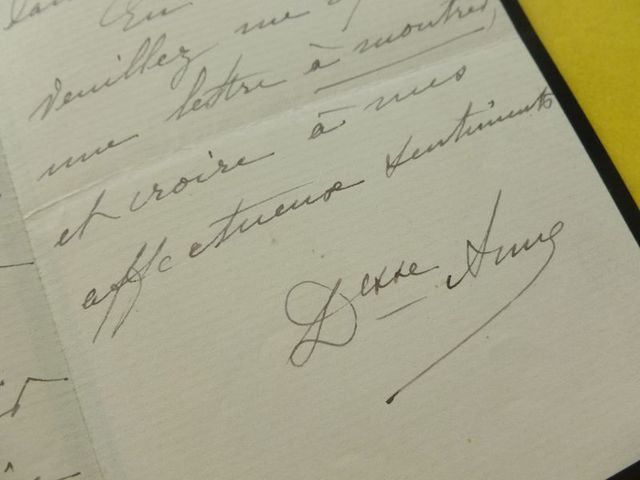 En
Veuillez me
une lettre à montrer,
et croire à mes
affectueux sentiments
Dsse Anne